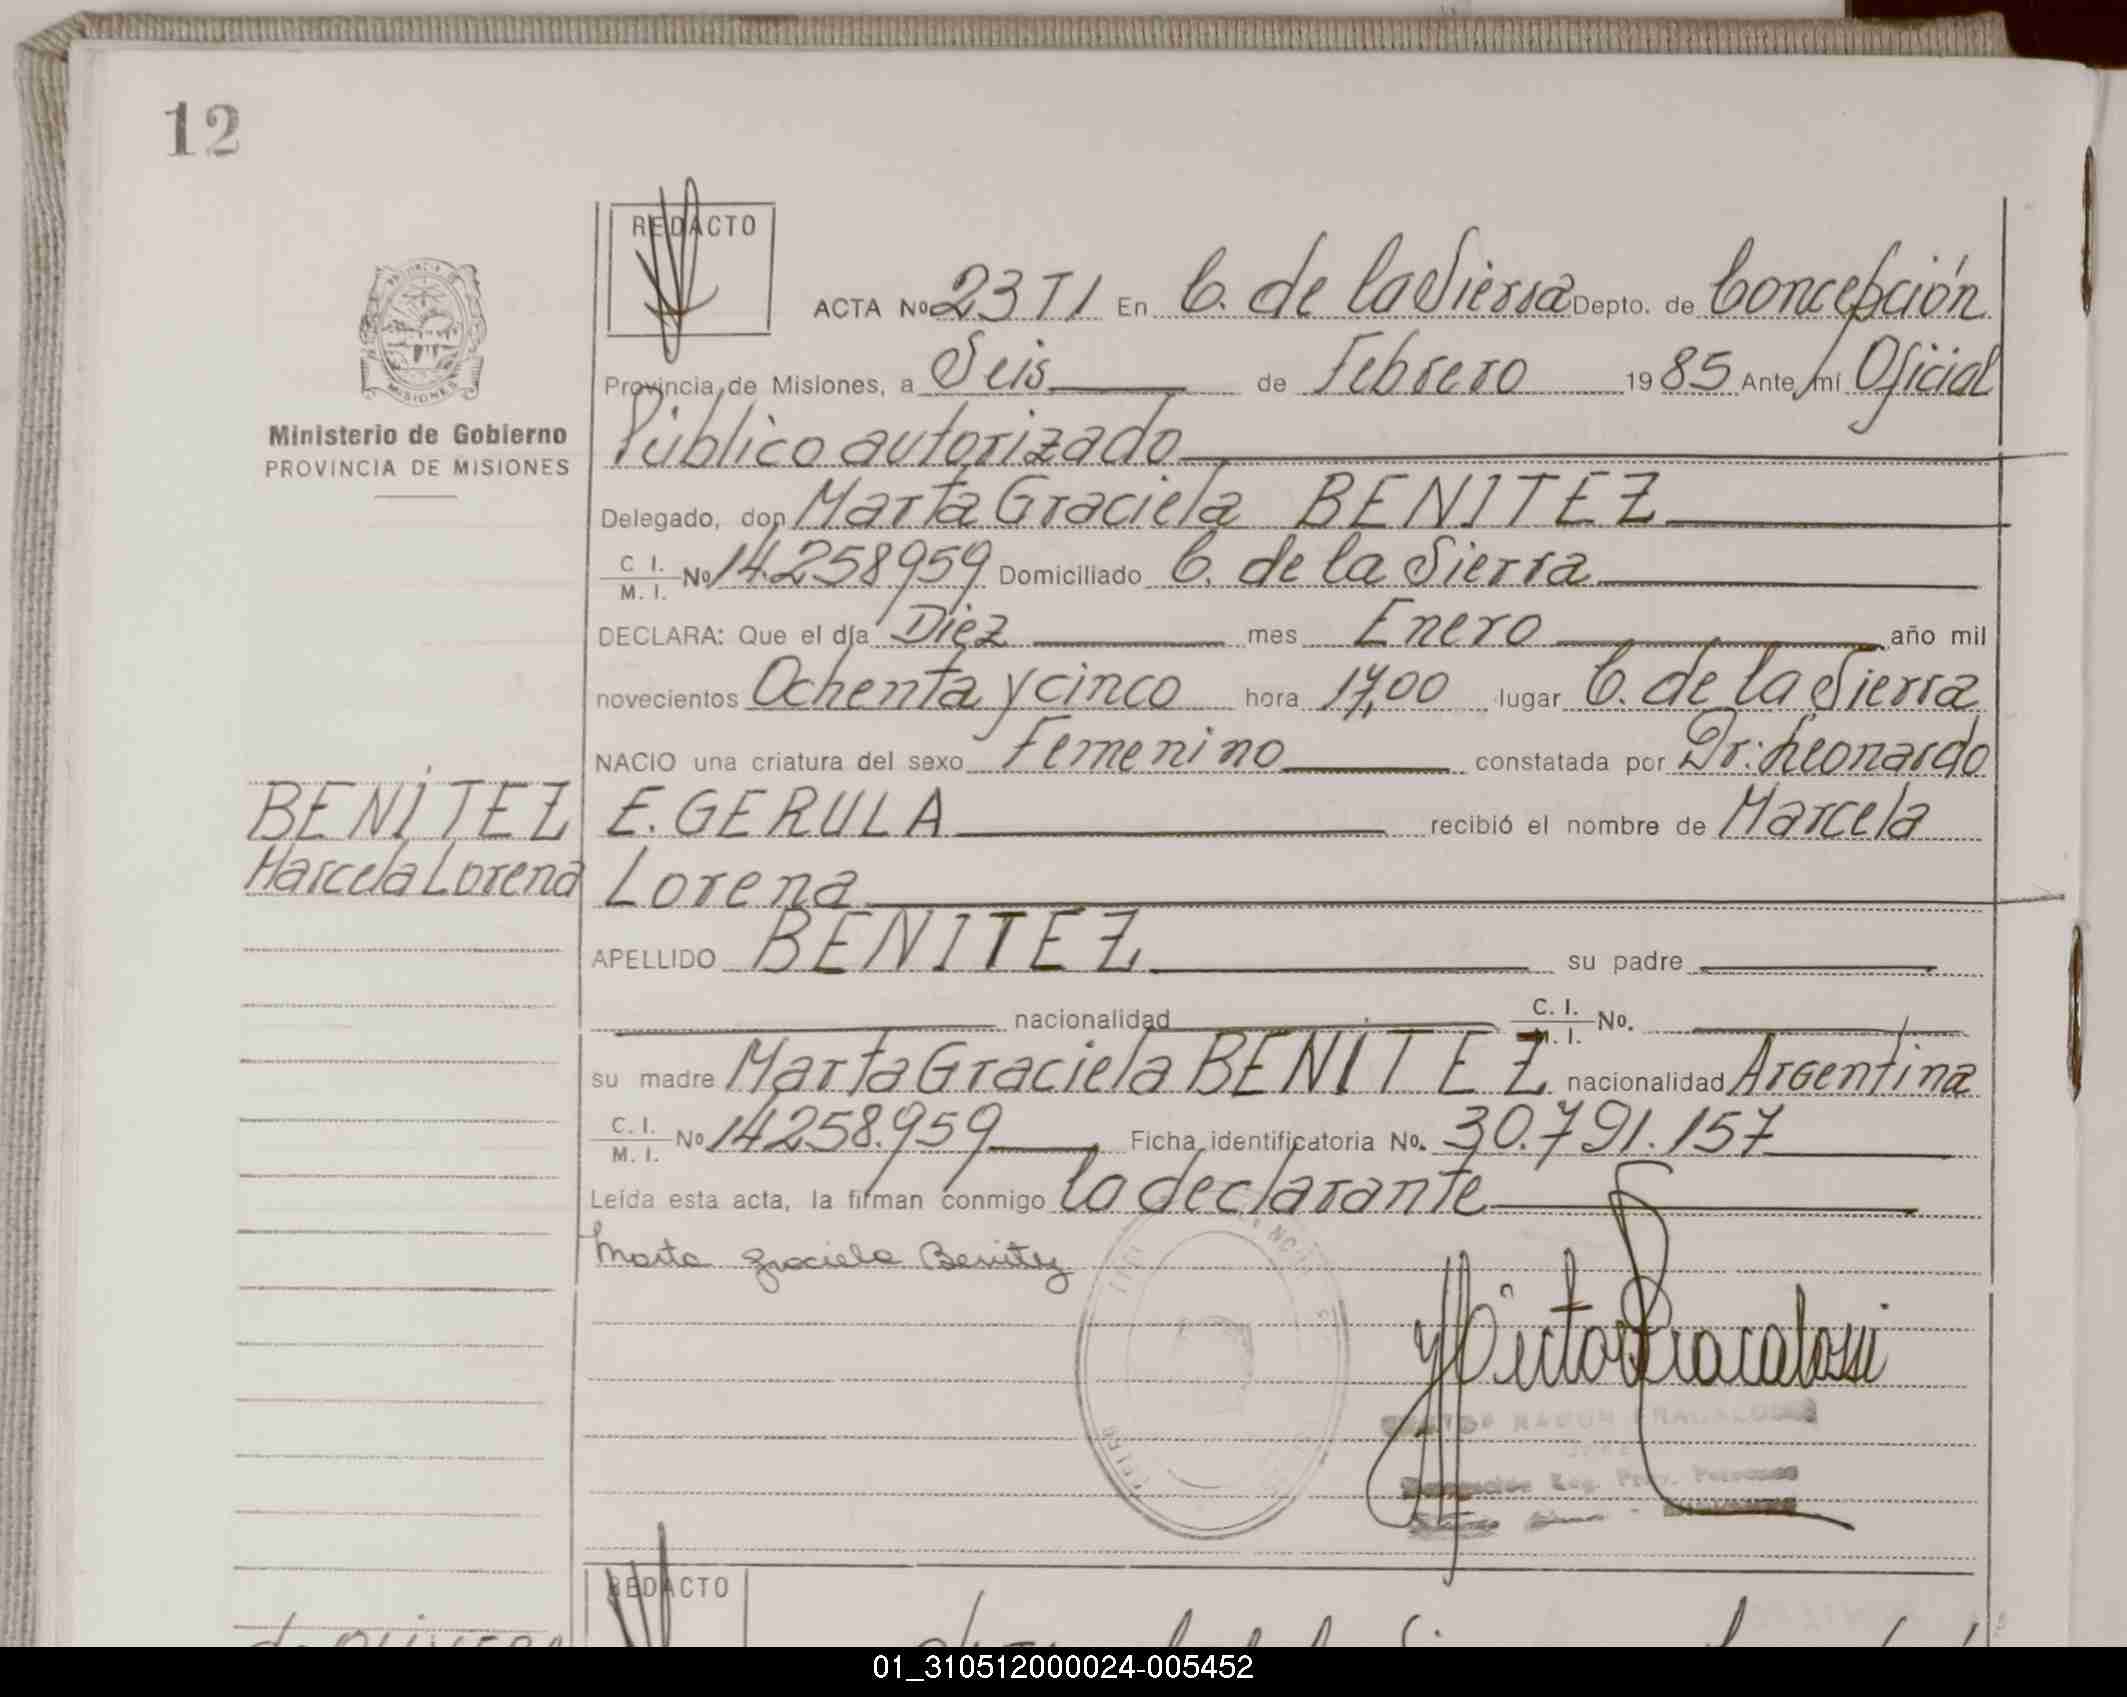 12
REDACTO
ACTA Nº 23 T I En C. de la Sierra Depto. de Concepción
Provincia de Misiones, a Seis de Febrero 1985 Ante mí Oficial
Público autorizado
Ministerio de Gobierno
PROVINCIA DE MISIONES
Delegado, don Marta Graciela BENITEZ
C. I. M. I. Nº 14.258959 Domiciliado C. de la Sierra
DECLARA: Que el día Diez mes Enero año mil
novecientos Ochenta y cinco hora 17,00 lugar C. de la Sierra
NACIO una criatura del sexo Femenino constatada por Dr: Leonardo
BENITEZ E. GERULA recibió el nombre de Marcela
Marcela Lorena Lorena
APELLIDO BENITEZ su padre
nacionalidad C. I. M. I. No.
su madre Marta Graciela BENITEZ nacionalidad Argentina
C. I. M. I. Nº 14258.959 Ficha identificatoria No. 30.791.157
Leída esta acta, la firman conmigo la declarante
Marta Graciela Benitez
REDACTO
01_310512000024-005452